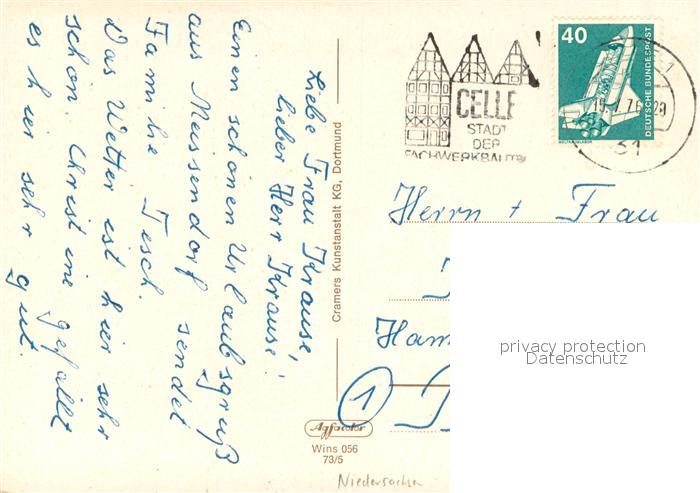 Liebe Frau Krause,
lieber Herr Krause!
Einen schönen Urlaubsgruß
aus Meissendorf sendet
Familie Tesch.
Das Wetter ist hier sehr
schön. Christine gefällt
es hier sehr gut.
Cramers Kunstanstalt KG, Dortmund
CELLE
STADT
DER
FACHWERKBAUTEN
40
DEUTSCHE BUNDESPOST
31
Herrn + Frau
Ham
1
privacy protection
Datenschutz
Wins 056
73/5
Niedersachsen